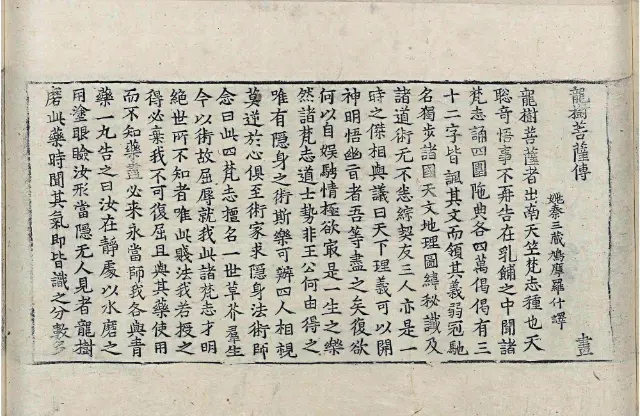 龍樹菩薩傳 畫
姚秦三藏鳩摩羅什譯
龍樹菩薩者出南天竺梵志種也天
聡奇悟事不再告在乳餔之中聞諸
梵志誦四圍陁典各四萬偈偈有三
十二字皆諷其文而領其義弱冠馳
名獨步諸國天文地理圖緯秘讖及
諸道術无不悉綜契友三人亦是一
時之傑相與議曰天下理義可以開
神明悟幽旨者吾等盡之矣復欲
何以自娛騁情極欲㝡是一生之樂
然諸梵志道士勢非王公何由得之
唯有隱身之術斯樂可辦四人相視
莫逆於心俱至術家求隱身法術師
念曰此四梵志擅名一世草芥羣生
今以術故屈辱就我此諸梵志才明
絶世所不知者唯此賤法我若授之
得必棄我不可復屈且與其藥使用
而不知藥盡必來永當師我各與青
藥一丸告之曰汝在靜處以水磨之
用塗眼瞼汝形當隱无人見者龍樹
磨此藥時聞其氣即皆識之分數多